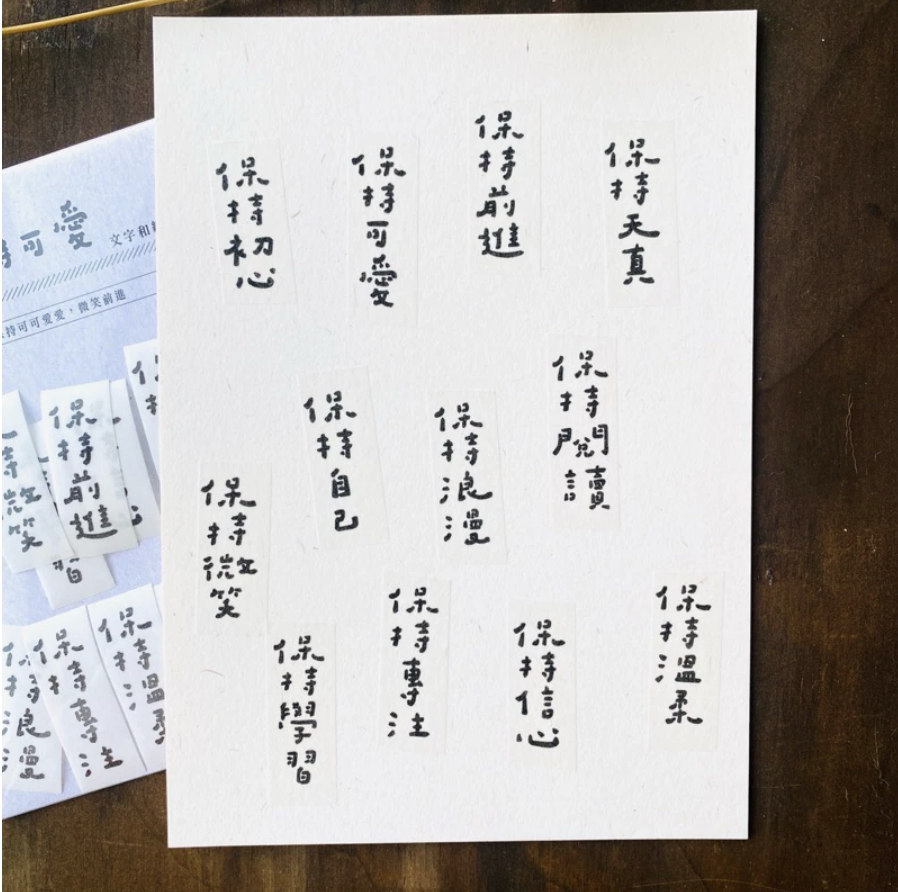 保持初心
保持可愛
保持前進
保持天真
保持自己
保持浪漫
保持閱讀
保持微笑
保持學習
保持專注
保持信心
保持溫柔
可愛
文字和
持可可愛愛，微笑前進
保
持微笑
保持前進
習
心
保持浪漫
保持專注
保持溫柔